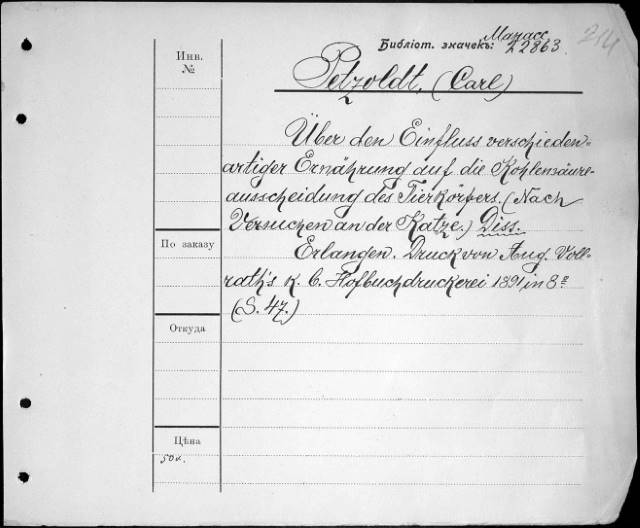 214
Манасс
Библіот. значекъ: 22863.
Инв.
№
Petzoldt, (Carl)
Über den Einfluss verschieden-
artiger Ernährung auf die Kohlensäure-
ausscheidung des Tierkörpers. (Nach
Versuchen an der Katze.) Diss.
По заказу
Erlangen. Druck von Aug. Voll-
rath's k. b. Hofbuchdruckerei 1891 in 8º
(S. 47.)
Откуда
Цѣна
50 к.